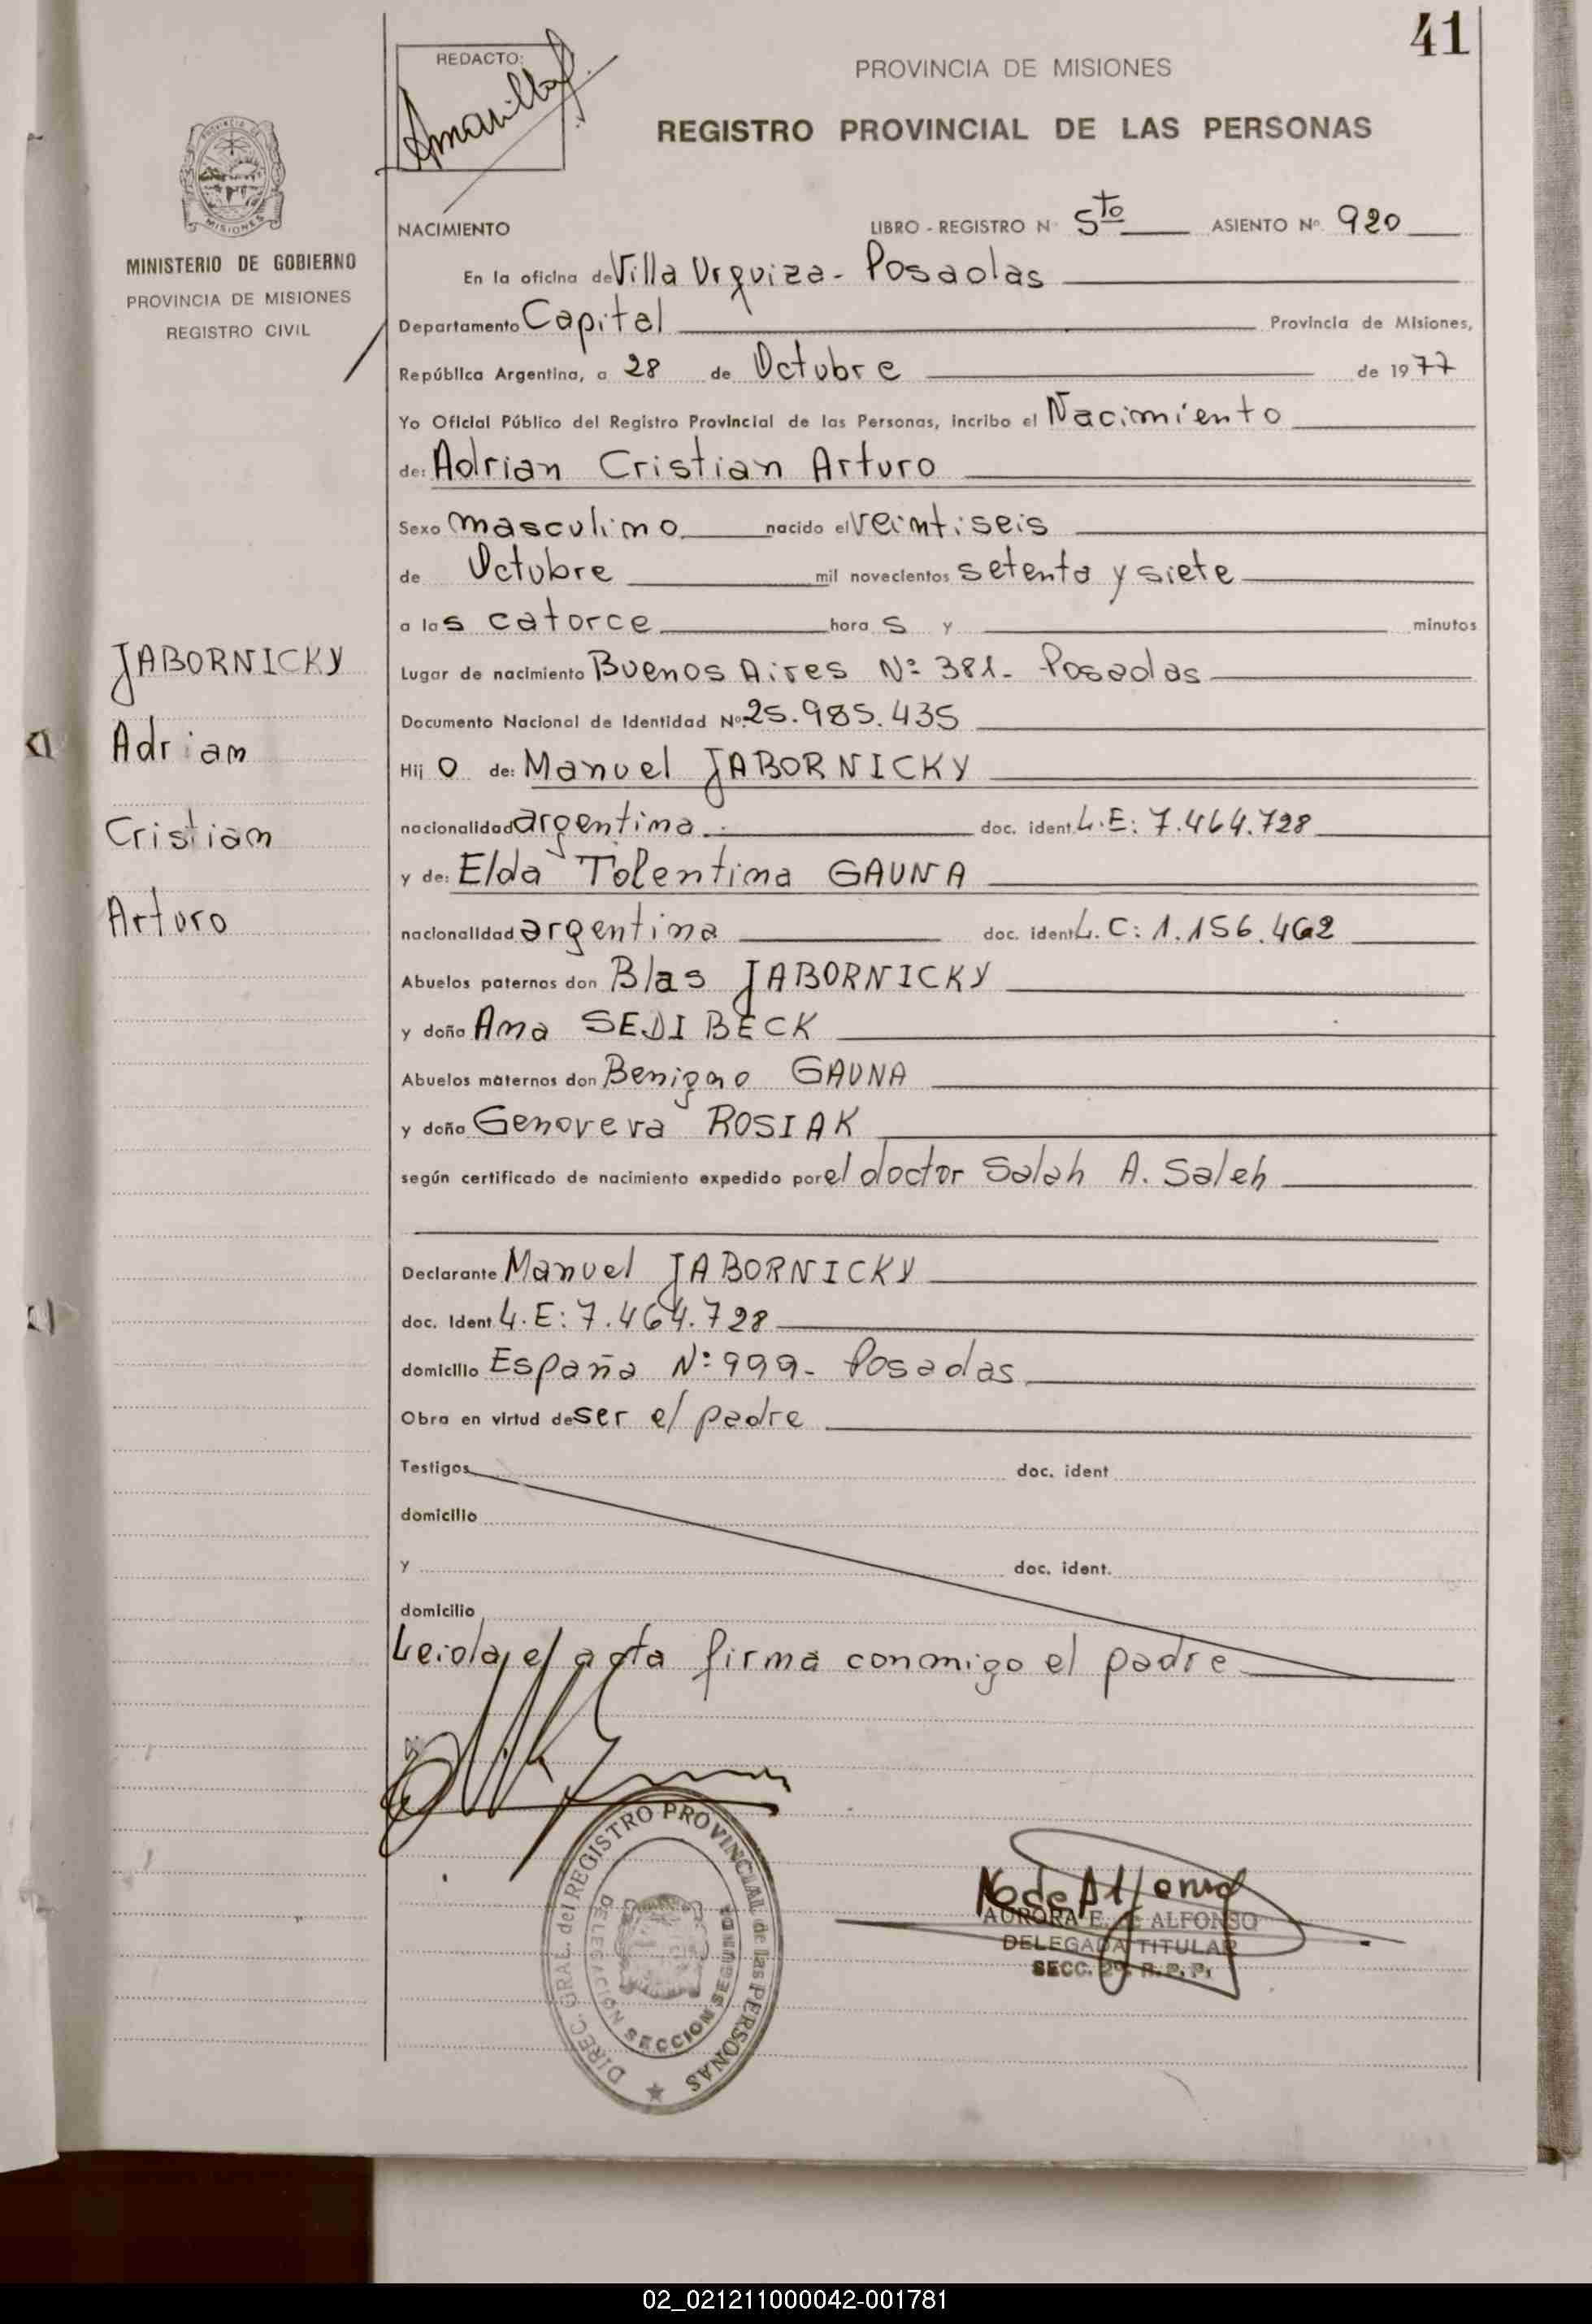 41
REDACTO:
PROVINCIA DE MISIONES
REGISTRO PROVINCIAL DE LAS PERSONAS
PROVINCIA DE
MISIONES
MINISTERIO DE GOBIERNO
PROVINCIA DE MISIONES
REGISTRO CIVIL
NACIMIENTO LIBRO - REGISTRO Nº 5to ASIENTO Nº 920
En la oficina de Villa Urquiza - Posadas
Departamento Capital Provincia de Misiones,
República Argentina, a 28 de Octubre de 1977
Yo Oficial Público del Registro Provincial de las Personas, incribo el Nacimiento
de: Adrian Cristian Arturo
Sexo masculino nacido el veintiseis
de Octubre mil novecientos setenta y siete
a las catorce horas y minutos
Lugar de nacimiento Buenos Aires Nº 381 - Posadas
Documento Nacional de Identidad Nº 25.985.435
Hijo de: Manuel JABORNICKY
nacionalidad argentina doc. ident. L.E: 7.464.728
y de: Elda Tolentina GAUNA
nacionalidad argentina doc. ident. L.C: 1.156.462
Abuelos paternos don Blas JABORNICKY
y doña Ana SEDIBECK
Abuelos maternos don Benigno GAUNA
y doña Genoveva ROSIAK
según certificado de nacimiento expedido por el doctor Salah A. Saleh
Declarante Manuel JABORNICKY
doc. Ident. L.E: 7.464.728
domicilio España Nº 999 - Posadas
Obra en virtud de ser el padre
Testigos doc. ident
domicilio
y doc. ident.
domicilio
Leida el acta firma conmigo el padre
JABORNICKY
Adrian
Cristian
Arturo
DIREC. GRAL. del REGISTRO PROVINCIAL de las PERSONAS
DELEGACION SECCION SEGUNDA
AURORA E. ALFONSO
DELEGADA TITULAR
SECC. 2ª R.P.P.
02_021211000042-001781